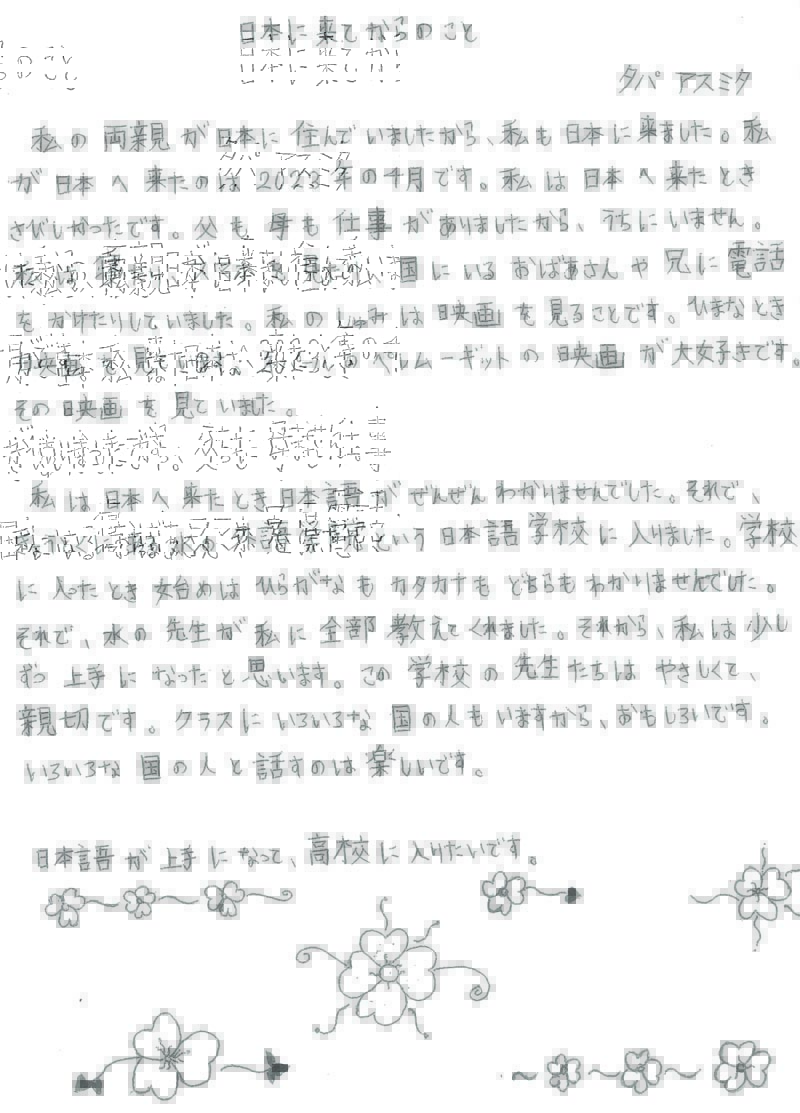 日本に来てからのこと
タパ アスミタ
私の両親が日本に住んでいましたから、私も日本に来ました。私
が日本へ来たのは2023年の4月です。私は日本へ来たとき
さびしかったです。父も母も仕事がありましたから、うちにいません。
私は 国にいるおばあさんや兄に電話
をかけたりしていました。私のしゅみは映画を見ることです。ひまなとき
映画を見ています。 の映画が大好きです。
その映画を見ていました。
私は日本へ来たとき日本語がぜんぜんわかりませんでした。それで、
という日本語学校に入りました。学校
に入ったとき始めはひらがなもカタカナもどちらもわかりませんでした。
それで、水の先生が私に全部教えてくれました。それから、私は少し
ずつ上手になったと思います。この学校の先生たちはやさしくて、
親切です。クラスにいろいろな国の人もいますから、おもしろいです。
いろいろな国の人と話すのは楽しいです。
日本語が上手になって、高校に入りたいです。